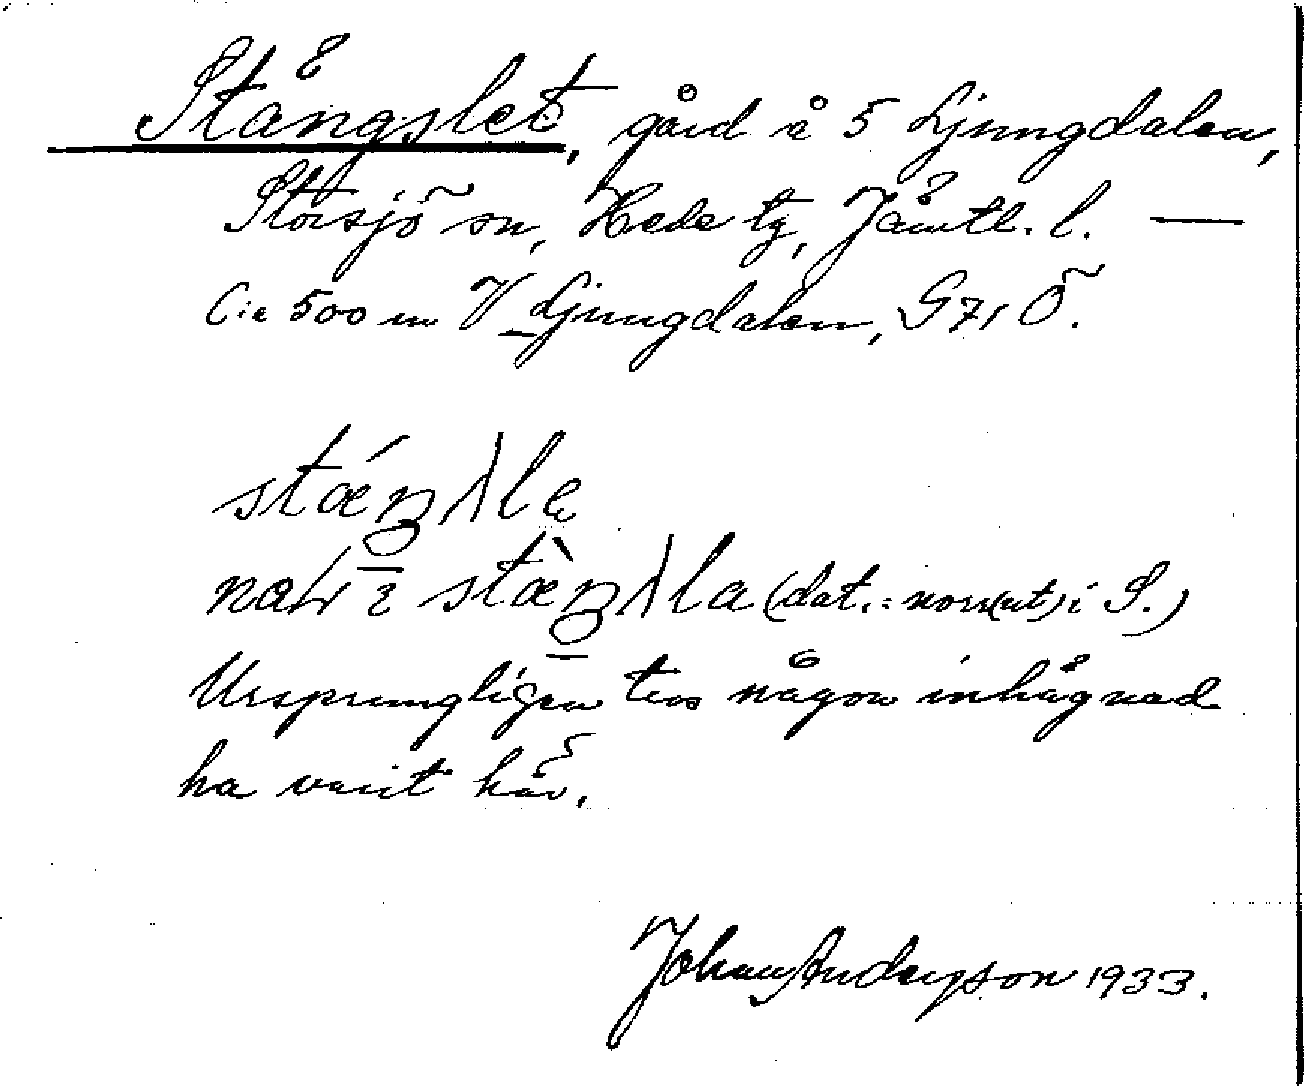 Stängslet, gård å 5 Ljungdalen,
Storsjö sn, Hede tg, Jämtl. l. —
C:a 500 m V Ljungdalen, G71 Ö.
(dat. = norr(ut) i S.)
Ursprungligen tros någon inhägnad
ha varit här.
Johan Anderson 1933.